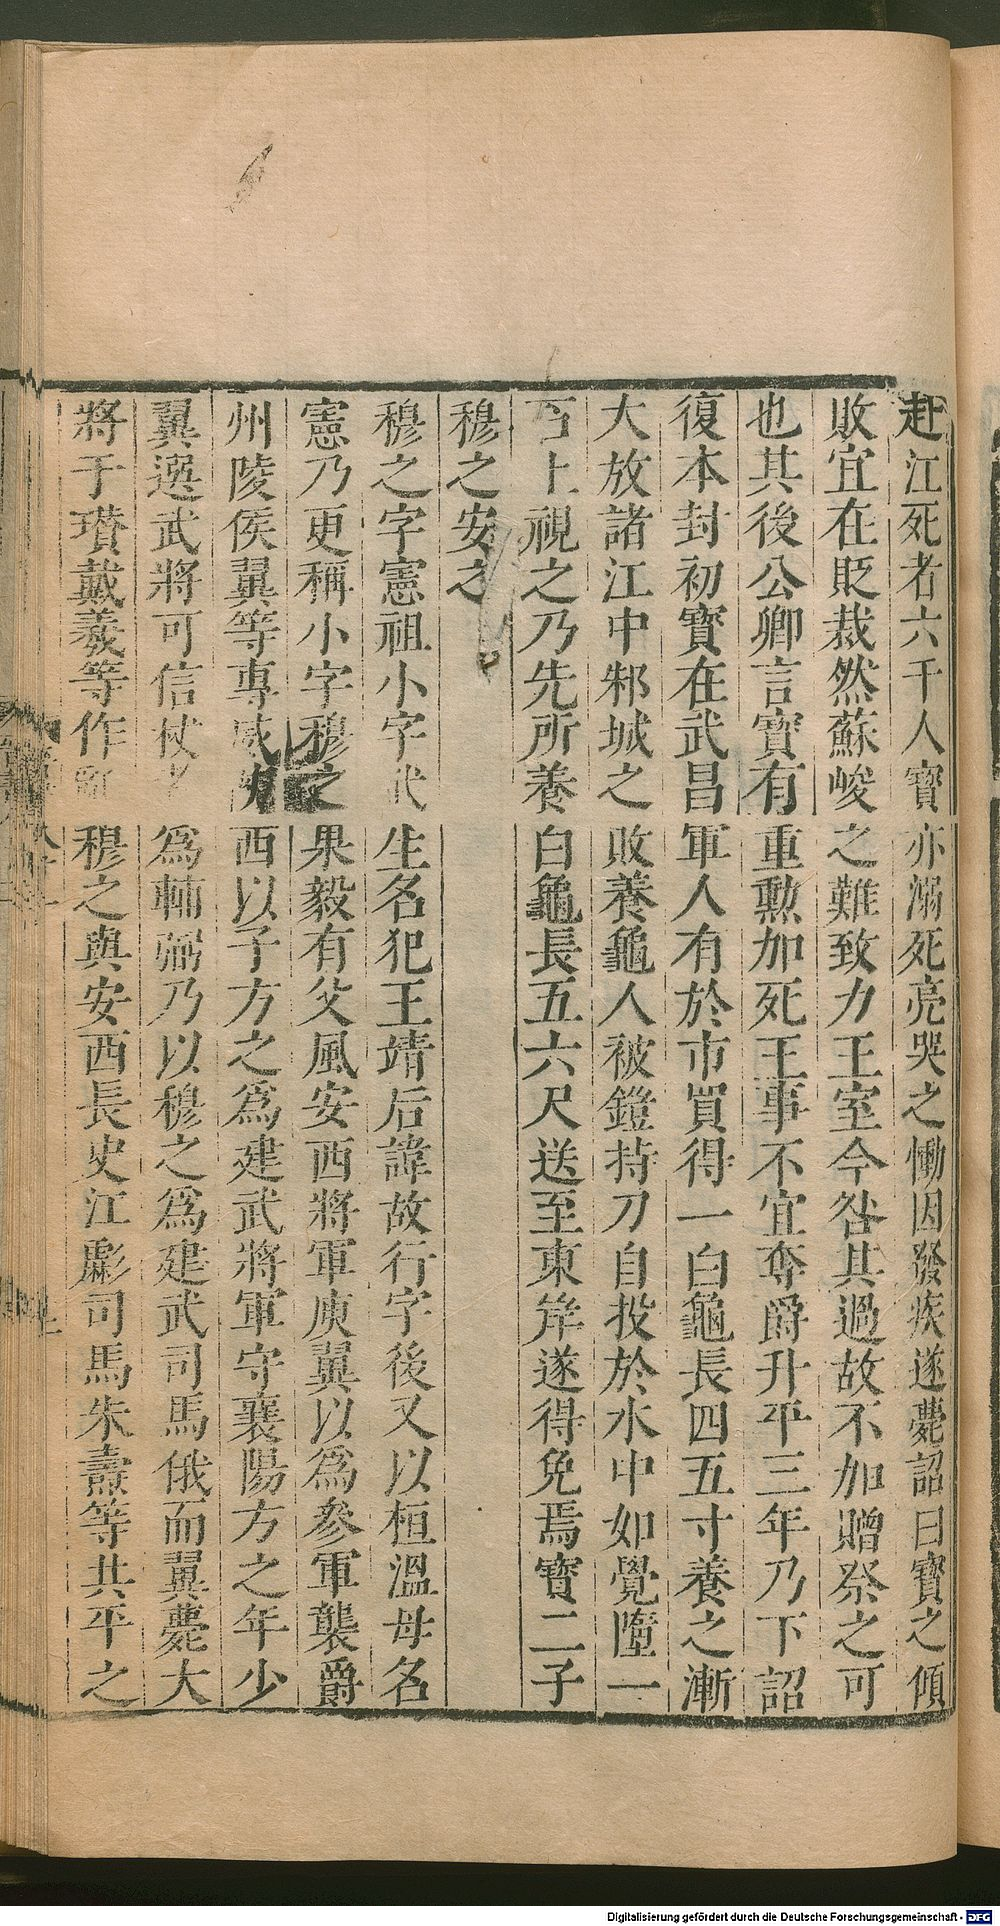 赴江死者六千人寶亦溺死亮哭之慟因發疾遂薨詔曰寶之傾
敗宜在貶裁然蘇峻之難致力王室今咎其過故不加贈祭之可
也其後公卿言寶有重勲加死王事不宜奪爵升平三年乃下詔
復本封初寶在武昌軍人有於市買得一白龜長四五寸養之漸
大放諸江中邾城之敗養龜人被鎧持刀自投於水中如覺墮一
石上視之乃先所養白龜長五六尺送至東岸遂得免焉寶二子
穆之安之
穆之字憲祖小字武生名犯王靖后諱故行字後又以桓溫母名
憲乃更稱小字穆之果毅有父風安西將軍庾翼以爲參軍襲爵
州陵侯翼等專威陝西以子方之爲建武將軍守襄陽方之年少
翼選武將可信杖者爲輔弼乃以穆之爲建武司馬俄而翼薨大
將于瓚戴羲等作亂穆之與安西長史江虨司馬朱壽等共平之
Digitalisierung gefördert durch die Deutsche Forschungsgemeinschaft - DFG